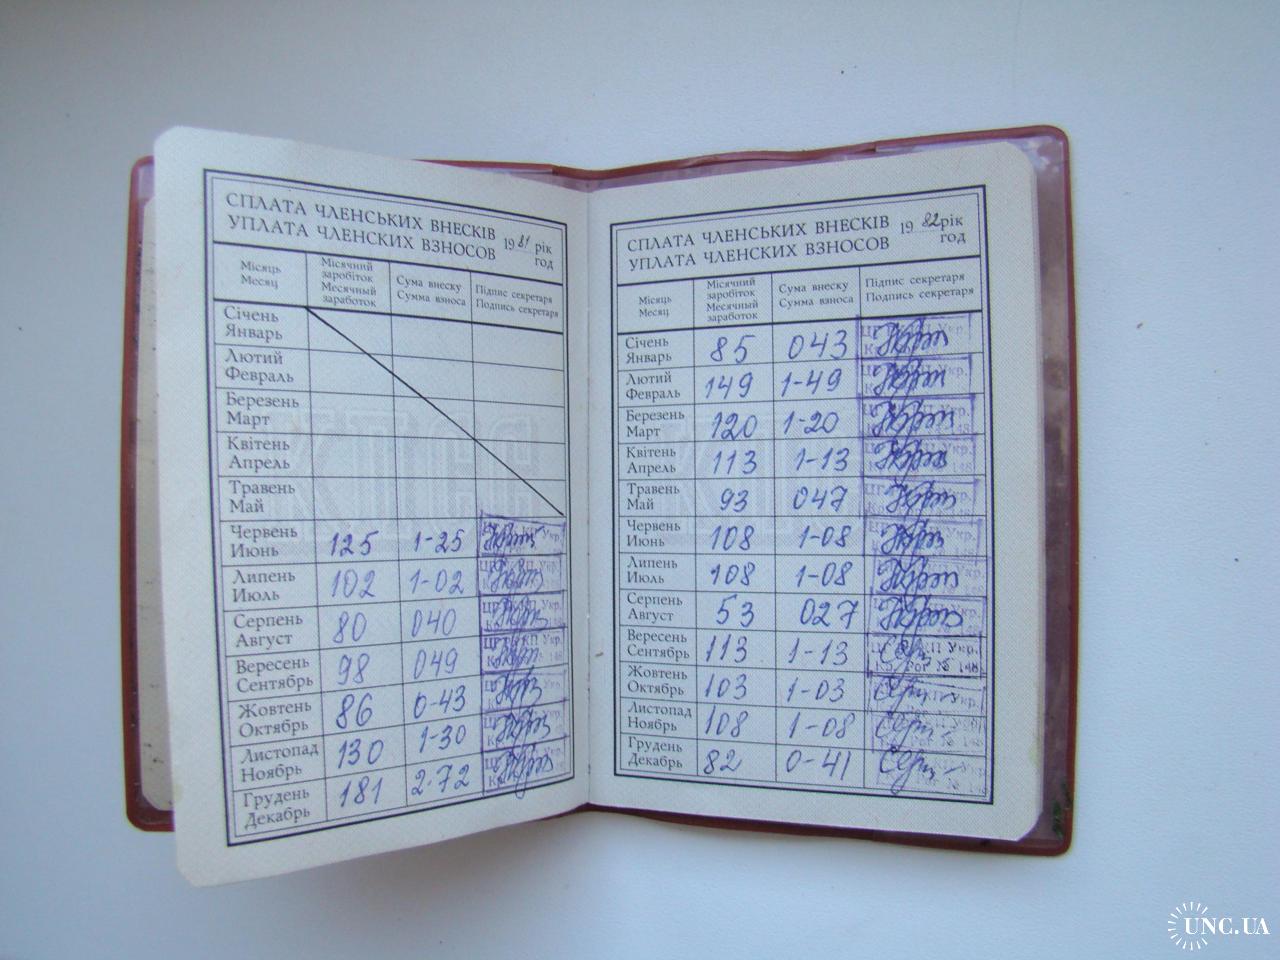 СПЛАТА ЧЛЕНСЬКИХ ВНЕСКІВ
УПЛАТА ЧЛЕНСКИХ ВЗНОСОВ
1981 рік
год
Місяць
Месяц
Місячний
заробіток
Месячный
заработок
Сума внеску
Сумма взноса
Підпис секретаря
Подпись секретаря
Січень
Январь
Лютий
Февраль
Березень
Март
Квітень
Апрель
Травень
Май
Червень
Июнь 125 1-25
Липень
Июль 102 1-02
Серпень
Август 80 040
Вересень
Сентябрь 98 049
Жовтень
Октябрь 86 0-43
Листопад
Ноябрь 130 1-30
Грудень
Декабрь 181 2-72
СПЛАТА ЧЛЕНСЬКИХ ВНЕСКІВ
УПЛАТА ЧЛЕНСКИХ ВЗНОСОВ
1982 рік
год
Місяць
Месяц
Місячний
заробіток
Месячный
заработок
Сума внеску
Сумма взноса
Підпис секретаря
Подпись секретаря
Січень
Январь 85 043
Лютий
Февраль 149 1-49
Березень
Март 120 1-20
Квітень
Апрель 113 1-13
Травень
Май 93 047
Червень
Июнь 108 1-08
Липень
Июль 108 1-08
Серпень
Август 53 027
Вересень
Сентябрь 113 1-13
Жовтень
Октябрь 103 1-03
Листопад
Ноябрь 108 1-08
Грудень
Декабрь 82 0-41
UNC.UA